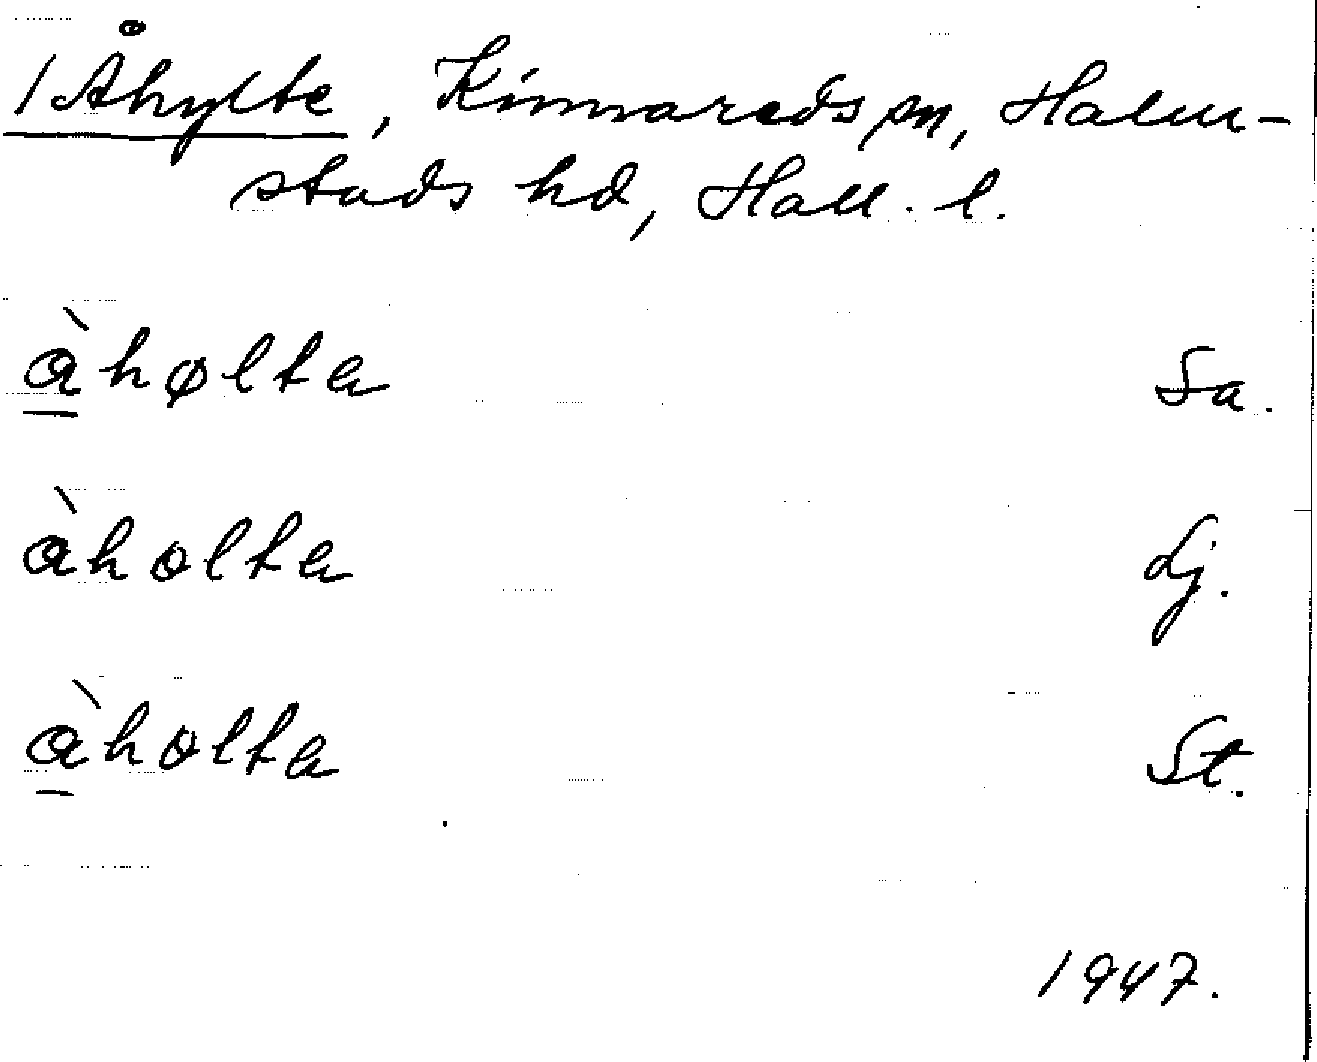 1 Åhylte, Kinnareds sn, Halm-
stads hd, Hall. l.
àhølta Sa.
àholta Lj.
àholta St.
1947.